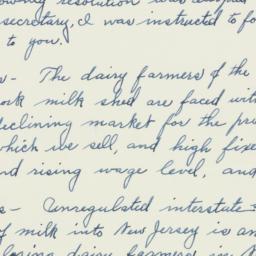 owing resolution was adopted
secretary, I was instructed to fo
to you.
s- The dairy farmers of the
ork milk shed are faced wit
declining market for the pro
which we sell, and high fixe
nd rising wage level, and
s- Unregulated interstate s
f milk into New Jersey is an
dairy farmers in N